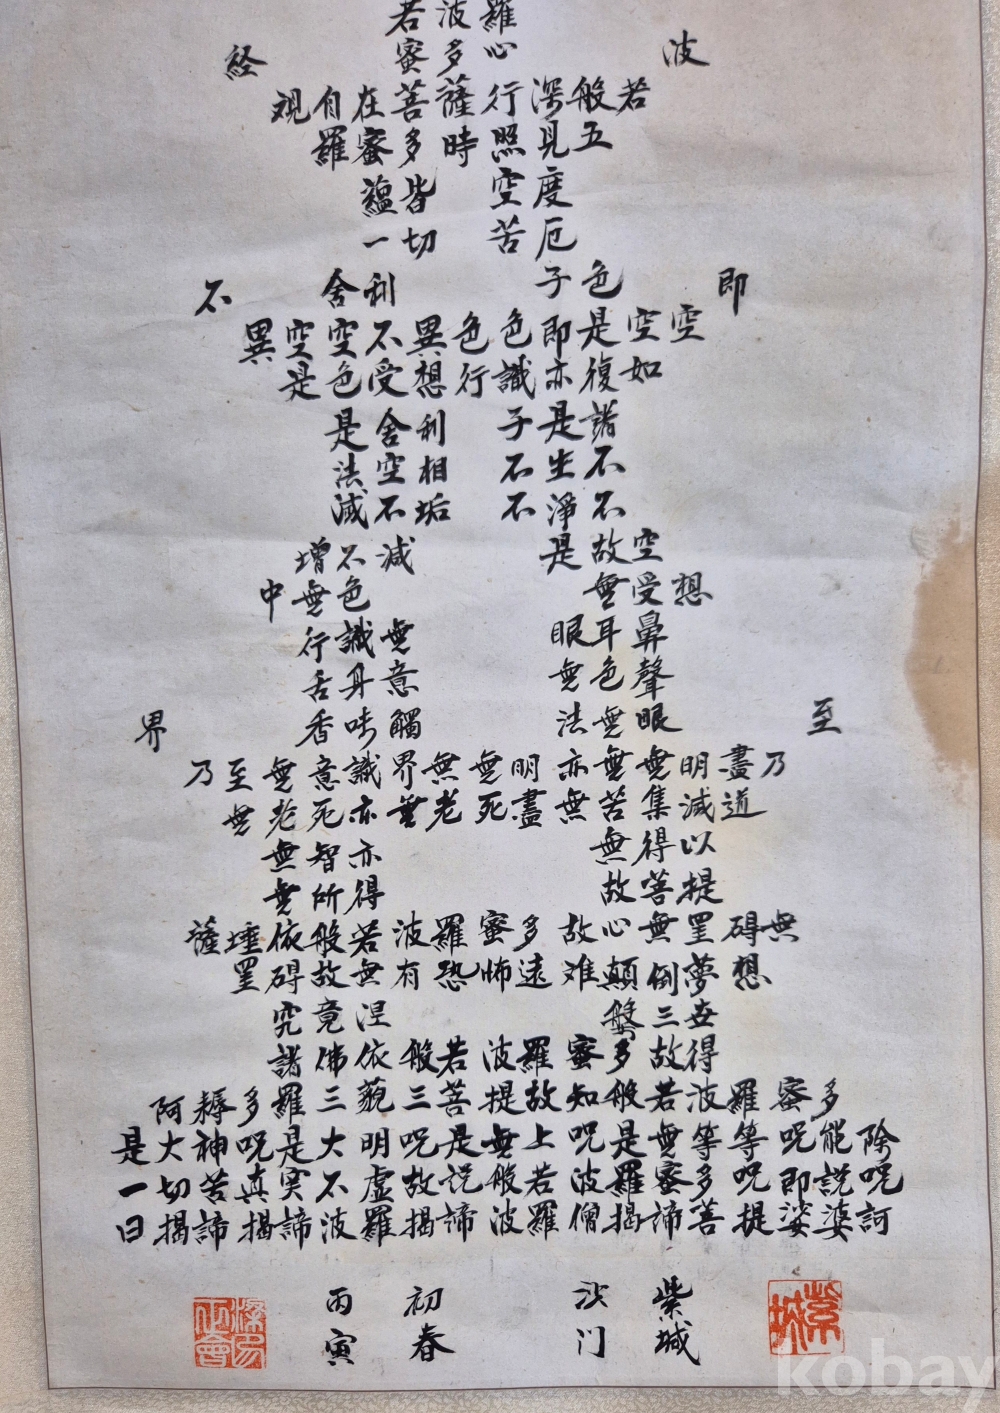 若波羅
蜜多心
経
観自在菩薩行深般若波
羅蜜多時照見五
蘊皆空度
一切苦厄
舍利子色
不異空空不異色色即是空空即
是色受想行識亦復如
是舍利子是諸
法空相不生不
滅不垢不淨不
增不減是故空
中無色無受想
行識無眼耳鼻
舌身意無色聲
香味觸法無眼
界乃至無意識界無無明亦無無明盡乃至
無老死亦無老死盡無苦集滅道
無智亦無得以
無所得故菩提
薩埵依般若波羅蜜多故心無罣碍無
罣碍故無有恐怖遠难顛倒夢想
究竟涅槃三世
諸佛依般若波羅蜜多故得
阿耨多羅三藐三菩提故知般若波羅蜜多
是大神呪是大明呪是無上呪是無等等呪能除
一切苦真実不虛故説般若波羅蜜多呪即説呪
曰揭諦揭諦波羅揭諦波羅僧揭諦菩提娑婆訶
丙寅
初春
沙门
紫城
紫城
kobay